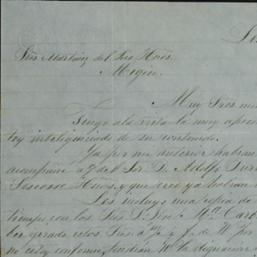 Sres Martinez del Rio Hnos.
Mejico.
Muy Sres mi
Tengo a la vista la muy apre
toy inteligenciado de su contenido.
Ya por mi anterior habran
acompañe a del Sor D. Adolfo
Hnos, y que creo ya habran
Les incluyo una copia de
tiempo con los Sres D. Ma
ber girado estos Sres a y J. de W. por
no estoy conforme, tendran la dignacion